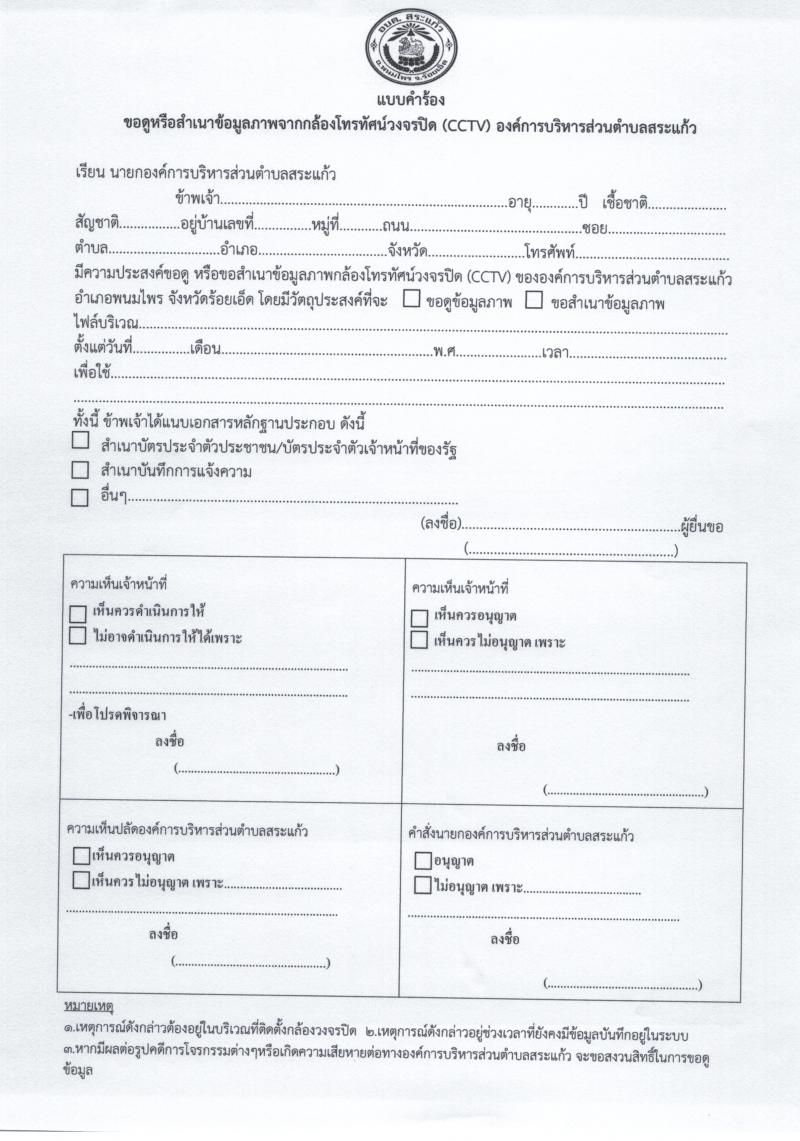 อบต. สระแก้ว
อ.พนมไพร จ.ร้อยเอ็ด
แบบคำร้อง
ขอดูหรือสำเนาข้อมูลภาพจากกล้องโทรทัศน์วงจรปิด (CCTV) องค์การบริหารส่วนตำบลสระแก้ว
เรียน นายกองค์การบริหารส่วนตำบลสระแก้ว
ข้าพเจ้า....................อายุ............ปี เชื้อชาติ....................
สัญชาติ................อยู่บ้านเลขที่...............หมู่ที่...........ถนน....................ซอย....................
ตำบล....................อำเภอ....................จังหวัด....................โทรศัพท์....................
มีความประสงค์ขอดู หรือขอสำเนาข้อมูลภาพกล้องโทรทัศน์วงจรปิด (CCTV) ขององค์การบริหารส่วนตำบลสระแก้ว
อำเภอพนมไพร จังหวัดร้อยเอ็ด โดยมีวัตถุประสงค์ที่จะ ☐ ขอดูข้อมูลภาพ ☐ ขอสำเนาข้อมูลภาพ
ไฟล์บริเวณ....................
ตั้งแต่วันที่...............เดือน....................พ.ศ....................เวลา....................
เพื่อใช้....................
....................
ทั้งนี้ ข้าพเจ้าได้แนบเอกสารหลักฐานประกอบ ดังนี้
☐ สำเนาบัตรประจำตัวประชาชน/บัตรประจำตัวเจ้าหน้าที่ของรัฐ
☐ สำเนาบันทึกการแจ้งความ
☐ อื่นๆ....................
(ลงชื่อ)....................ผู้ยื่นขอ
(....................)
ความเห็นเจ้าหน้าที่
☐ เห็นควรดำเนินการให้
☐ ไม่อาจดำเนินการให้ได้เพราะ
....................
....................
-เพื่อโปรดพิจารณา
ลงชื่อ
(....................)
ความเห็นเจ้าหน้าที่
☐ เห็นควรอนุญาต
☐ เห็นควรไม่อนุญาต เพราะ
....................
....................
ลงชื่อ
(....................)
ความเห็นปลัดองค์การบริหารส่วนตำบลสระแก้ว
☐ เห็นควรอนุญาต
☐ เห็นควรไม่อนุญาต เพราะ....................
....................
ลงชื่อ
(....................)
คำสั่งนายกองค์การบริหารส่วนตำบลสระแก้ว
☐ อนุญาต
☐ ไม่อนุญาต เพราะ....................
....................
ลงชื่อ
(....................)
หมายเหตุ
๑.เหตุการณ์ดังกล่าวต้องอยู่ในบริเวณที่ติดตั้งกล้องวงจรปิด ๒.เหตุการณ์ดังกล่าวอยู่ช่วงเวลาที่ยังคงมีข้อมูลบันทึกอยู่ในระบบ
๓.หากมีผลต่อรูปคดีการโจรกรรมต่างๆหรือเกิดความเสียหายต่อทางองค์การบริหารส่วนตำบลสระแก้ว จะขอสงวนสิทธิ์ในการขอดู
ข้อมูล